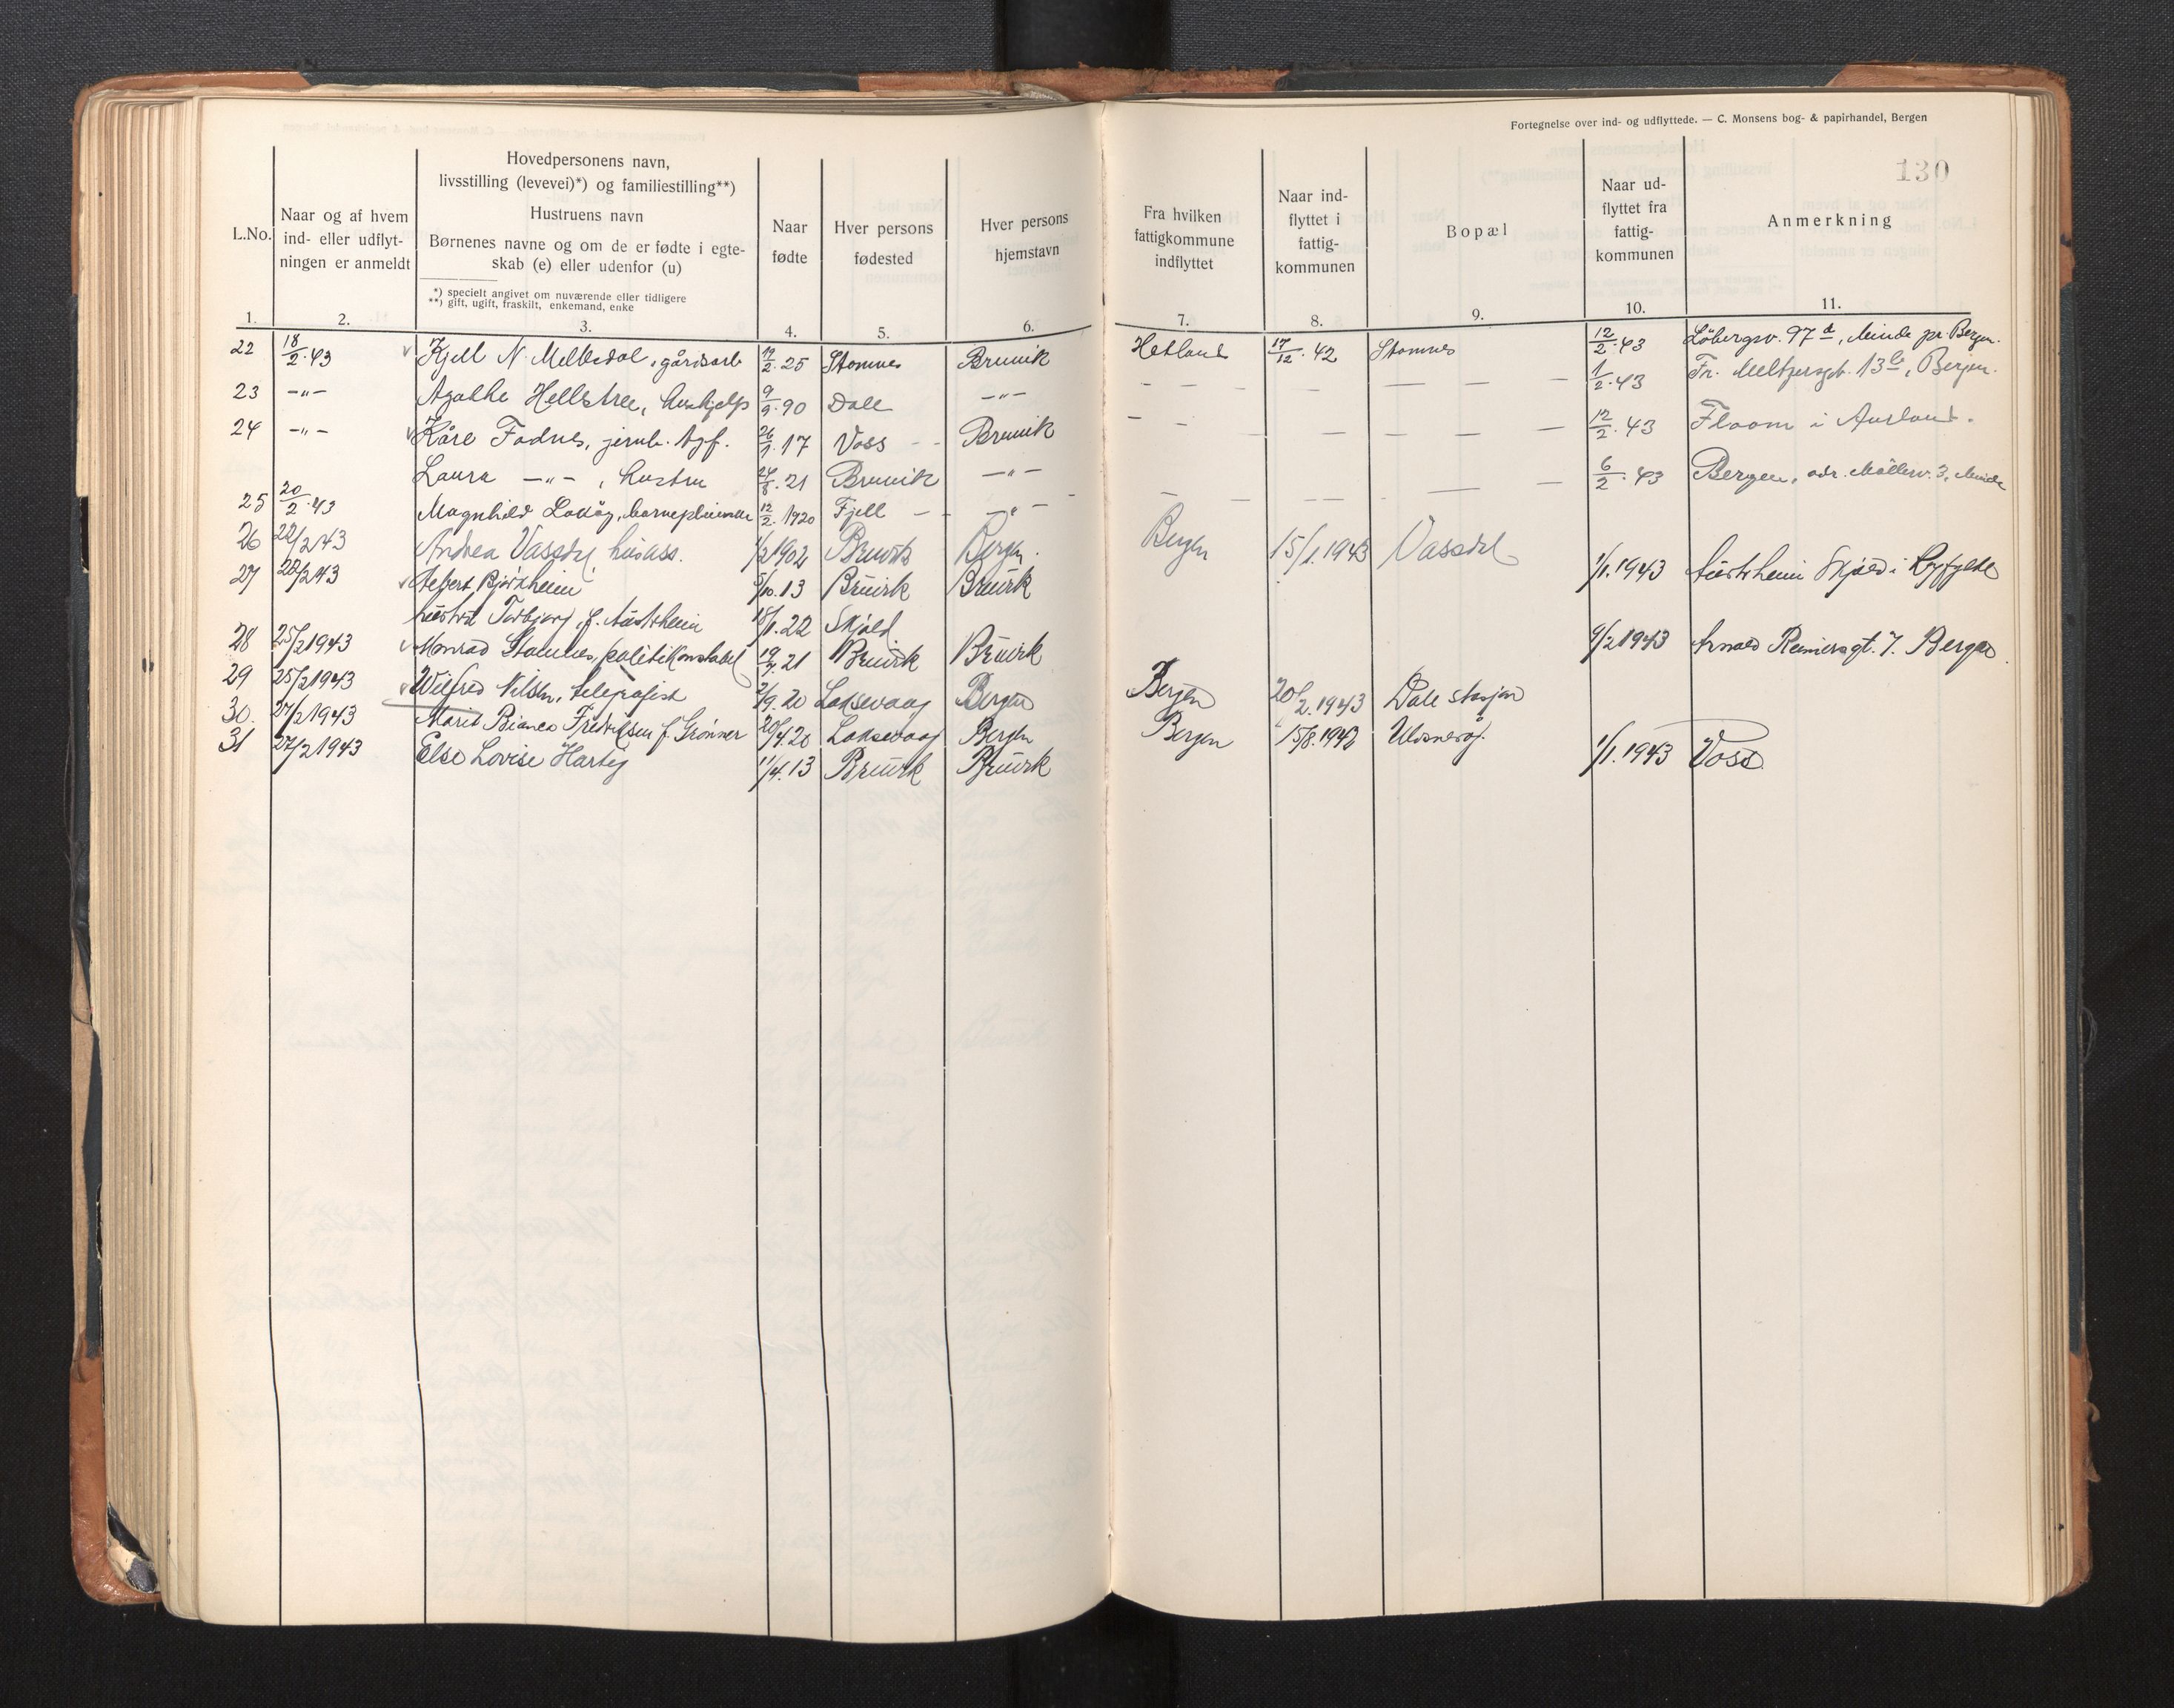 Fortegnelse over ind- og udflyttede. — C. Monsens bog- & papirhandel, Bergen
130
L.No. Naar og af hvem ind- eller udflyt- ningen er anmeldt
Hovedpersonens navn,
livsstilling (levevei)*) og familiestilling**)
Hustruens navn
Børnenes navne og om de er fødte i egte-
skab (e) eller udenfor (u)
*) specielt angivet om nuværende eller tidligere
**) gift, ugift, fraskilt, enkemand, enke
Naar fødte
Hver persons fødested
Hver persons hjemstavn
Fra hvilken fattigkommune indflyttet
Naar ind- flyttet i fattig- kommunen
Bopæl
Naar ud- flyttet fra fattig- kommunen
Anmerkning
1. 2. 3. 4. 5. 6. 7. 8. 9. 10. 11.
22 18/2.43 Kjell N. Melkedal, gårdsarb 19/2.25 Stamnes Bruvik Hetland 17/12.42 Stamnes 12/2.43 Löbergsv. 97 d, Minde pr. Bergen.
23 —"— Agathe Hellstree, hushjelp 9/9.90 Dale —"— — — — — — — 1/2.43 Fr. Meltzersgt. 13 b, Bergen.
24 —"— Kåre Fadnes, jernb. 26/1.17 Voss - - Bruvik — — — — — — 12/2.43 Flaam i Aurland.
Laura —"—, hustru 24/8.21 Bruvik —"—
25 20/2.43 Magnhild barnepleierske 12/2.1920 Fjell — — —"— — — — — — — 6/2.43 Bergen, adr. Møllerv. 3, Minde
26 22/2 43 Andrea Vassdal husass. 1/2 1902 Bruvik Bergen. Bergen 15/1.1943 Vassdal
27 22/2 43 Bjørkheim 5/10.13 Bruvik Bruvik 1/1.1943 Austrheim Skjold i Ryfylke
hustru Torbjørg, f. Austrheim 18/1.22 Skjold
28 25/2 1943 Monrad Stamnes, politikonstabel 19/7.21 Bruvik Bruvik 9/2 1943 Arnold Reimersgt. 7. Bergen.
29 25/2 1943 Wilfred Nilsen, telegrafist 2/9.20 Laksevaag Bergen Bergen 20/2.1943 Dale stasjon
30. 27/2 1943 Marie Bianca Fredriksen f. Grønner 20/4.20 Laksevaag Bergen Bergen 15/8.1942
31 27/2 1943 Else Lovise Hartig 11/4.13 Bruvik Bruvik 1/1.1943 Voss.